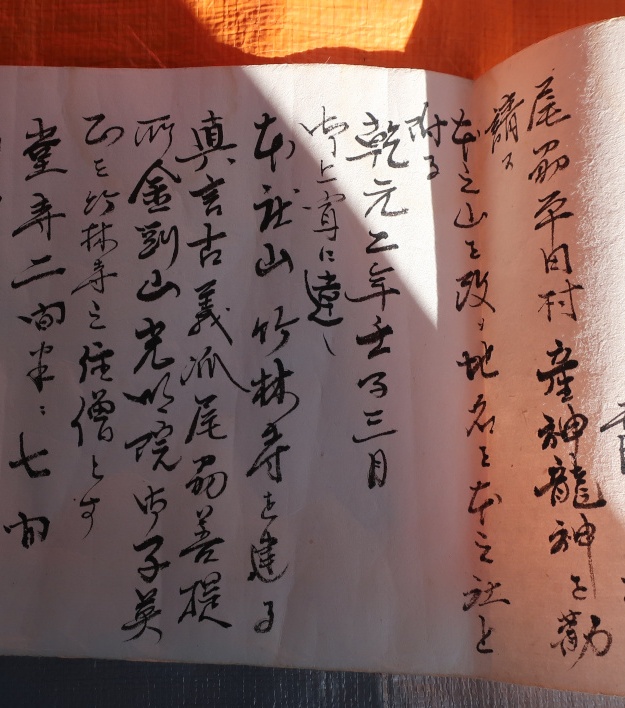 尾刕平田村産神龍神を勧
請ス
本之山を改メ地名を本之社と
附る
乾元二年壬三月
御上聞に達し
本社山竹林寺を建る
眞言古義派尾刕菩提
所金剛山光明院御子英
を竹林寺之住僧とす
堂寺二間半ニ七間